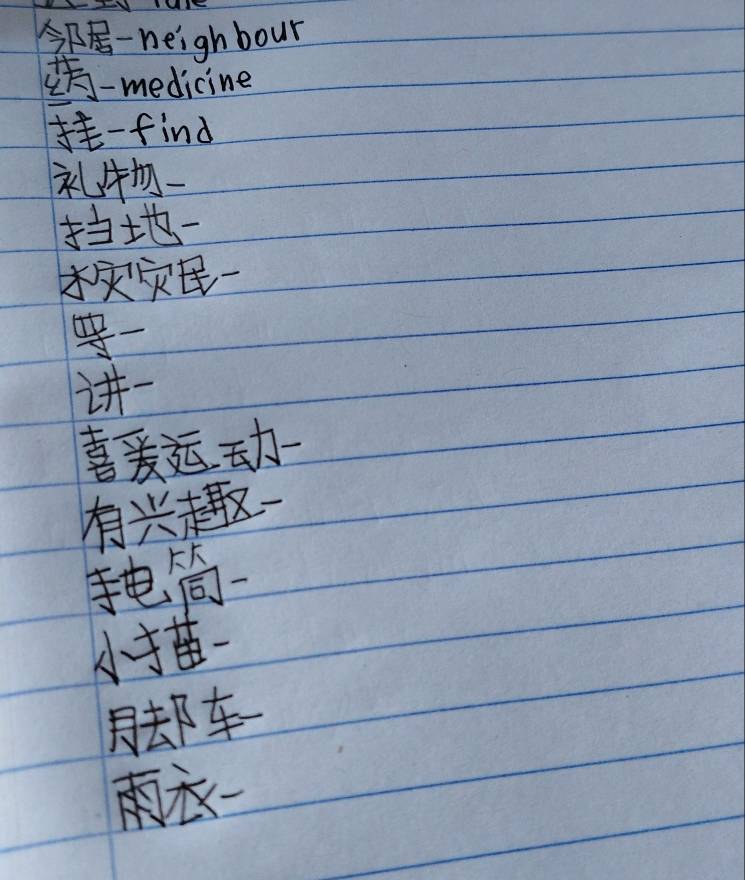 rule
邻居-neighbour
药-medicine
挂-find
礼物-
挡地-
水灾灾民-
等-
讲-
喜爱运动-
有兴趣-
手电筒-
小猫-
脚车-
雨衣-